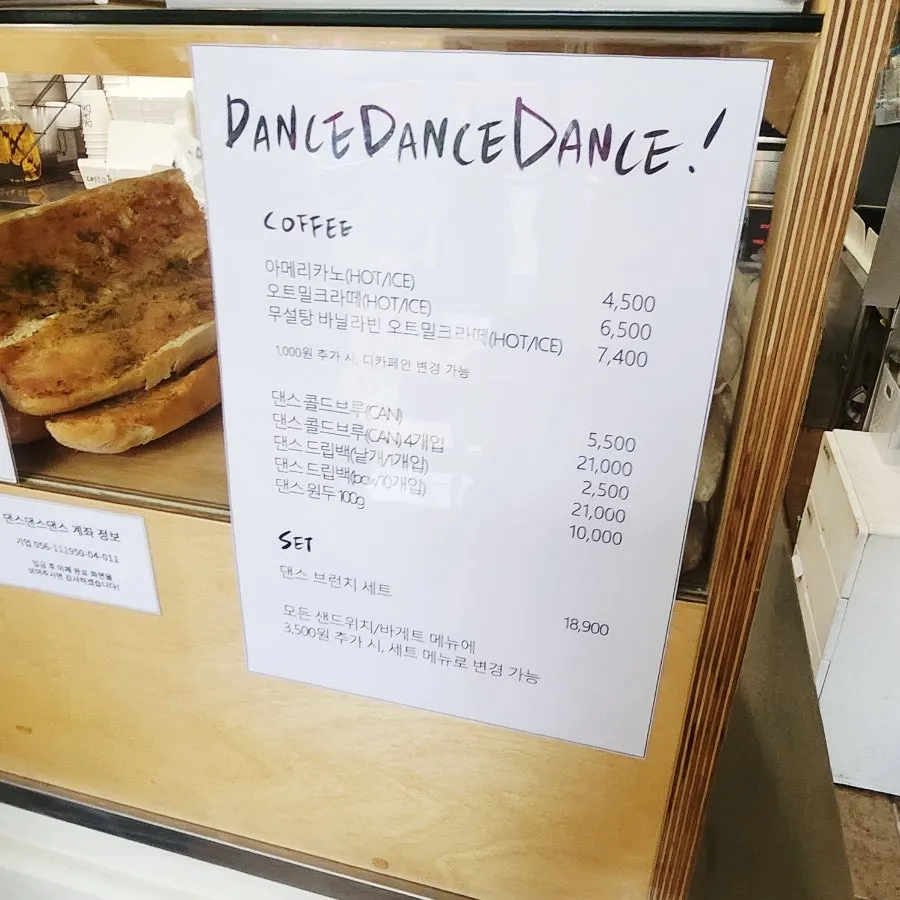 DANCEDANCEDANCE!
COFFEE
아메리카노(HOT/ICE) 4,500
오트밀크라떼(HOT/ICE) 6,500
무설탕 바닐라빈 오트밀크라떼(HOT/ICE) 7,400
1,000원 추가 시, 디카페인 변경 가능
댄스 콜드브루(CAN) 5,500
댄스 콜드브루(CAN) 4개입 21,000
댄스 드립백(낱개/1개입) 2,500
댄스 드립백(box/10개입) 21,000
댄스 원두 100g 10,000
SET
댄스 브런치 세트 18,900
모든 샌드위치/바게트 메뉴에
3,500원 추가 시, 세트 메뉴로 변경 가능
댄스댄스댄스 계좌 정보
기업 056-111950-04-011
입금 후 이체 완료 화면을
보여주시면 감사하겠습니다!